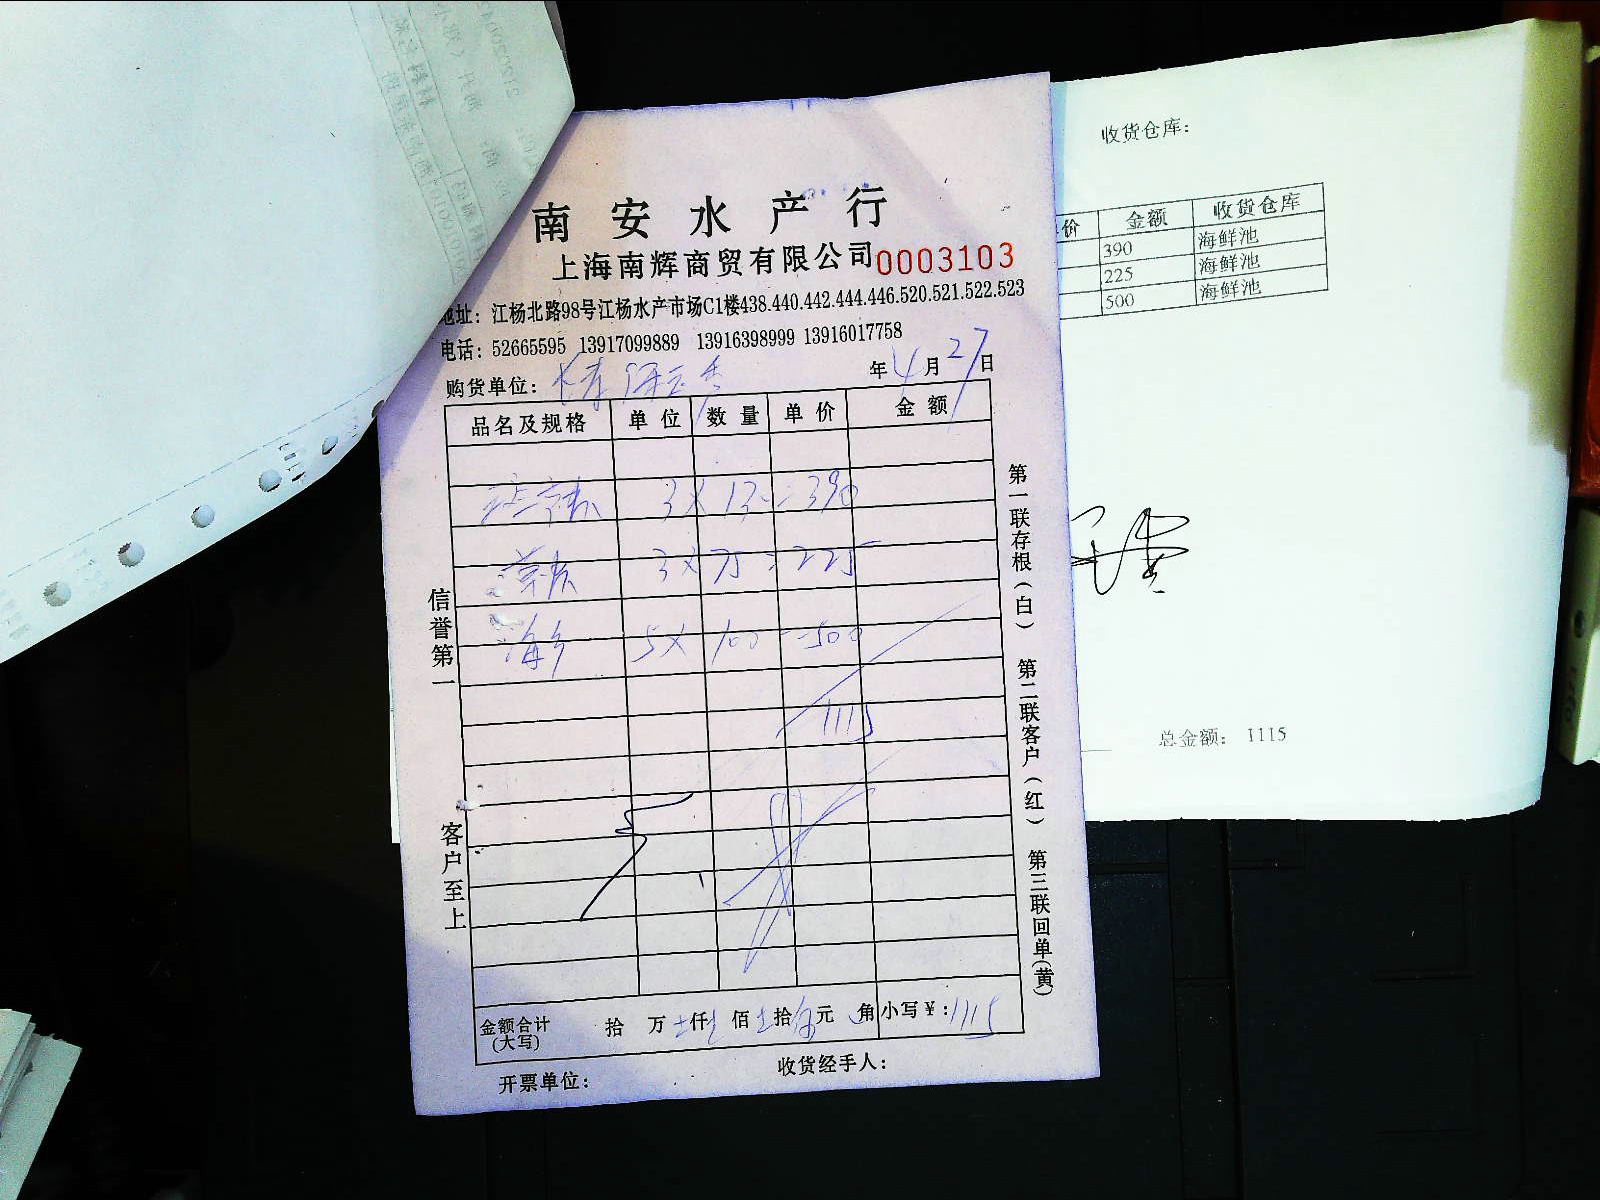 南安水产行
上海南辉商贸有限公司 0003103
地址：江杨北路98号江杨水产市场C1楼438.440.442.444.446.520.521.522.523
电话：52665595 13917099889 13916398999 13916017758
购货单位： 年4月27日
品名及规格 单位 数量 单价 金额
3 × 13 = 390
3 × 75 = 225
5 × 100 = 500
1115
金额合计 拾 万 仟 佰 拾 元 角 小写￥：1115
(大写)
开票单位： 收货经手人：
信誉第一
客户至上
第一联存根（白）
第二联客户（红）
第三联回单（黄）
收货仓库：
价 金额 收货仓库
390 海鲜池
225 海鲜池
500 海鲜池
总金额： 1115